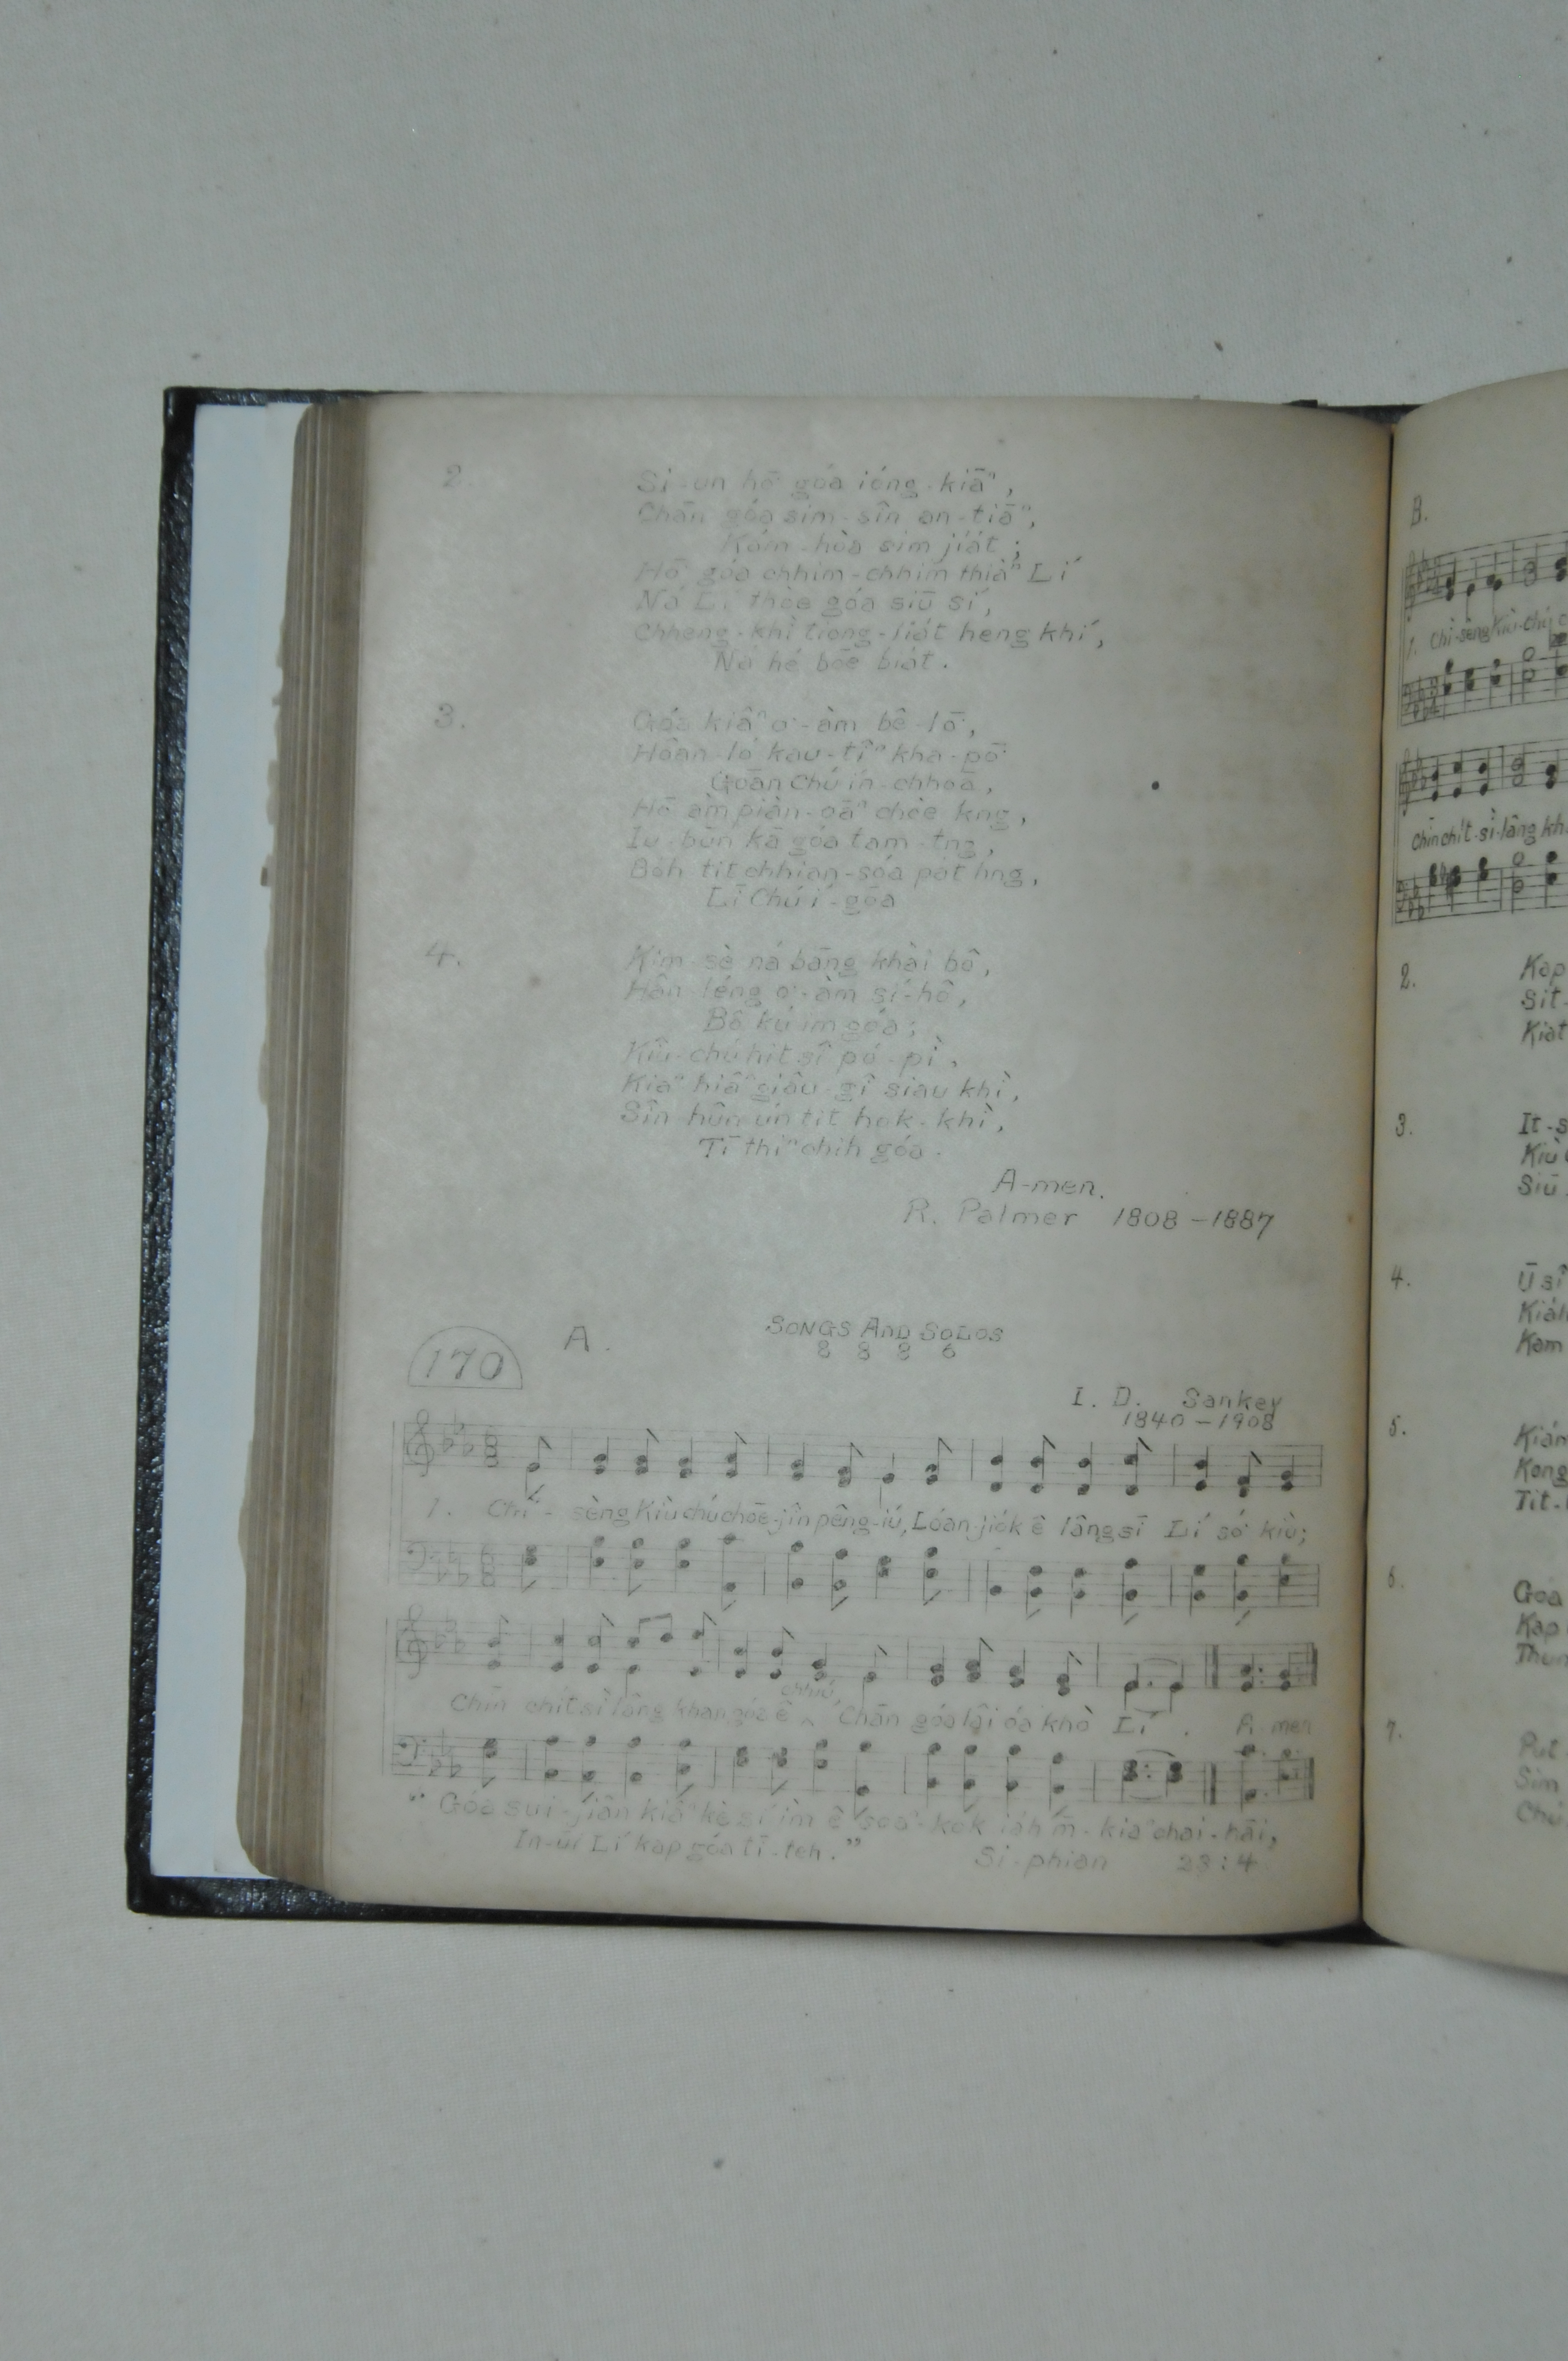 2.
Si-un hō͘ góa ióng-kiāⁿ,
Chān góa sim-sîn an-tiāⁿ,
Kám-hòa sim jia̍t;
Hō͘ góa chhim-chhim thiàⁿ Lí
Ná Lí thòe góa siū sí,
Chheng-khì tiong-lia̍t heng khí,
Ná hé bōe bia̍t.
3.
Góa kiâⁿ o͘-àm bê-lō͘,
Hoân-ló kau-tîⁿ kha-pō͘
Goān Chú ín-chhoā,
Hō͘ àm piàn-oāⁿ chòe kng,
Iu-būn kā góa tam-tng,
Bo̍h tit chhian-sóa pa̍t hng,
Lī Chú i-góa
4.
Kim-sè ná bāng khài bô,
Hân-léng o͘-àm sí-hô,
Bô kú im góa;
Kiù-chú hit sî pó-pì,
Kiaⁿ hiâⁿ giâu-gî siau khì,
Sîn-hûn ún tit hok-khì,
Tī thiⁿ chih góa.
A-men.
R. Palmer 1808-1887
170
A.
SONGS AND SOLOS
8 8 8 6
I. D. Sankey
1840-1908
1. Chì-sèng Kiù-chú chōe-jîn pêng-iú, Lóan-jio̍k ê lâng sī Lí só͘ kiù;
chhiú,
Chīn chit sì lâng khan góa ê ^ Chān góa lâi óa khò Lí. A men
"Góa sui-jiân kiâⁿ kè sí ìm ê soaⁿ-kok iáh m̄-kiaⁿ chai-hāi,
In-ūi Lí kap góa tī-teh."
Si-phian 23:4
B.
1. Chì-sèng Kiù-chú
Chīn chit-sì-lâng
2.
Kap
Sit-
Kiat
3.
It-s
Kiù
Siū
4.
Ū sî
Kiáh
Kam
5.
Kián
Kong
Tit-
6.
Goa
Kap
Thun
7.
Put
Sim
Chú